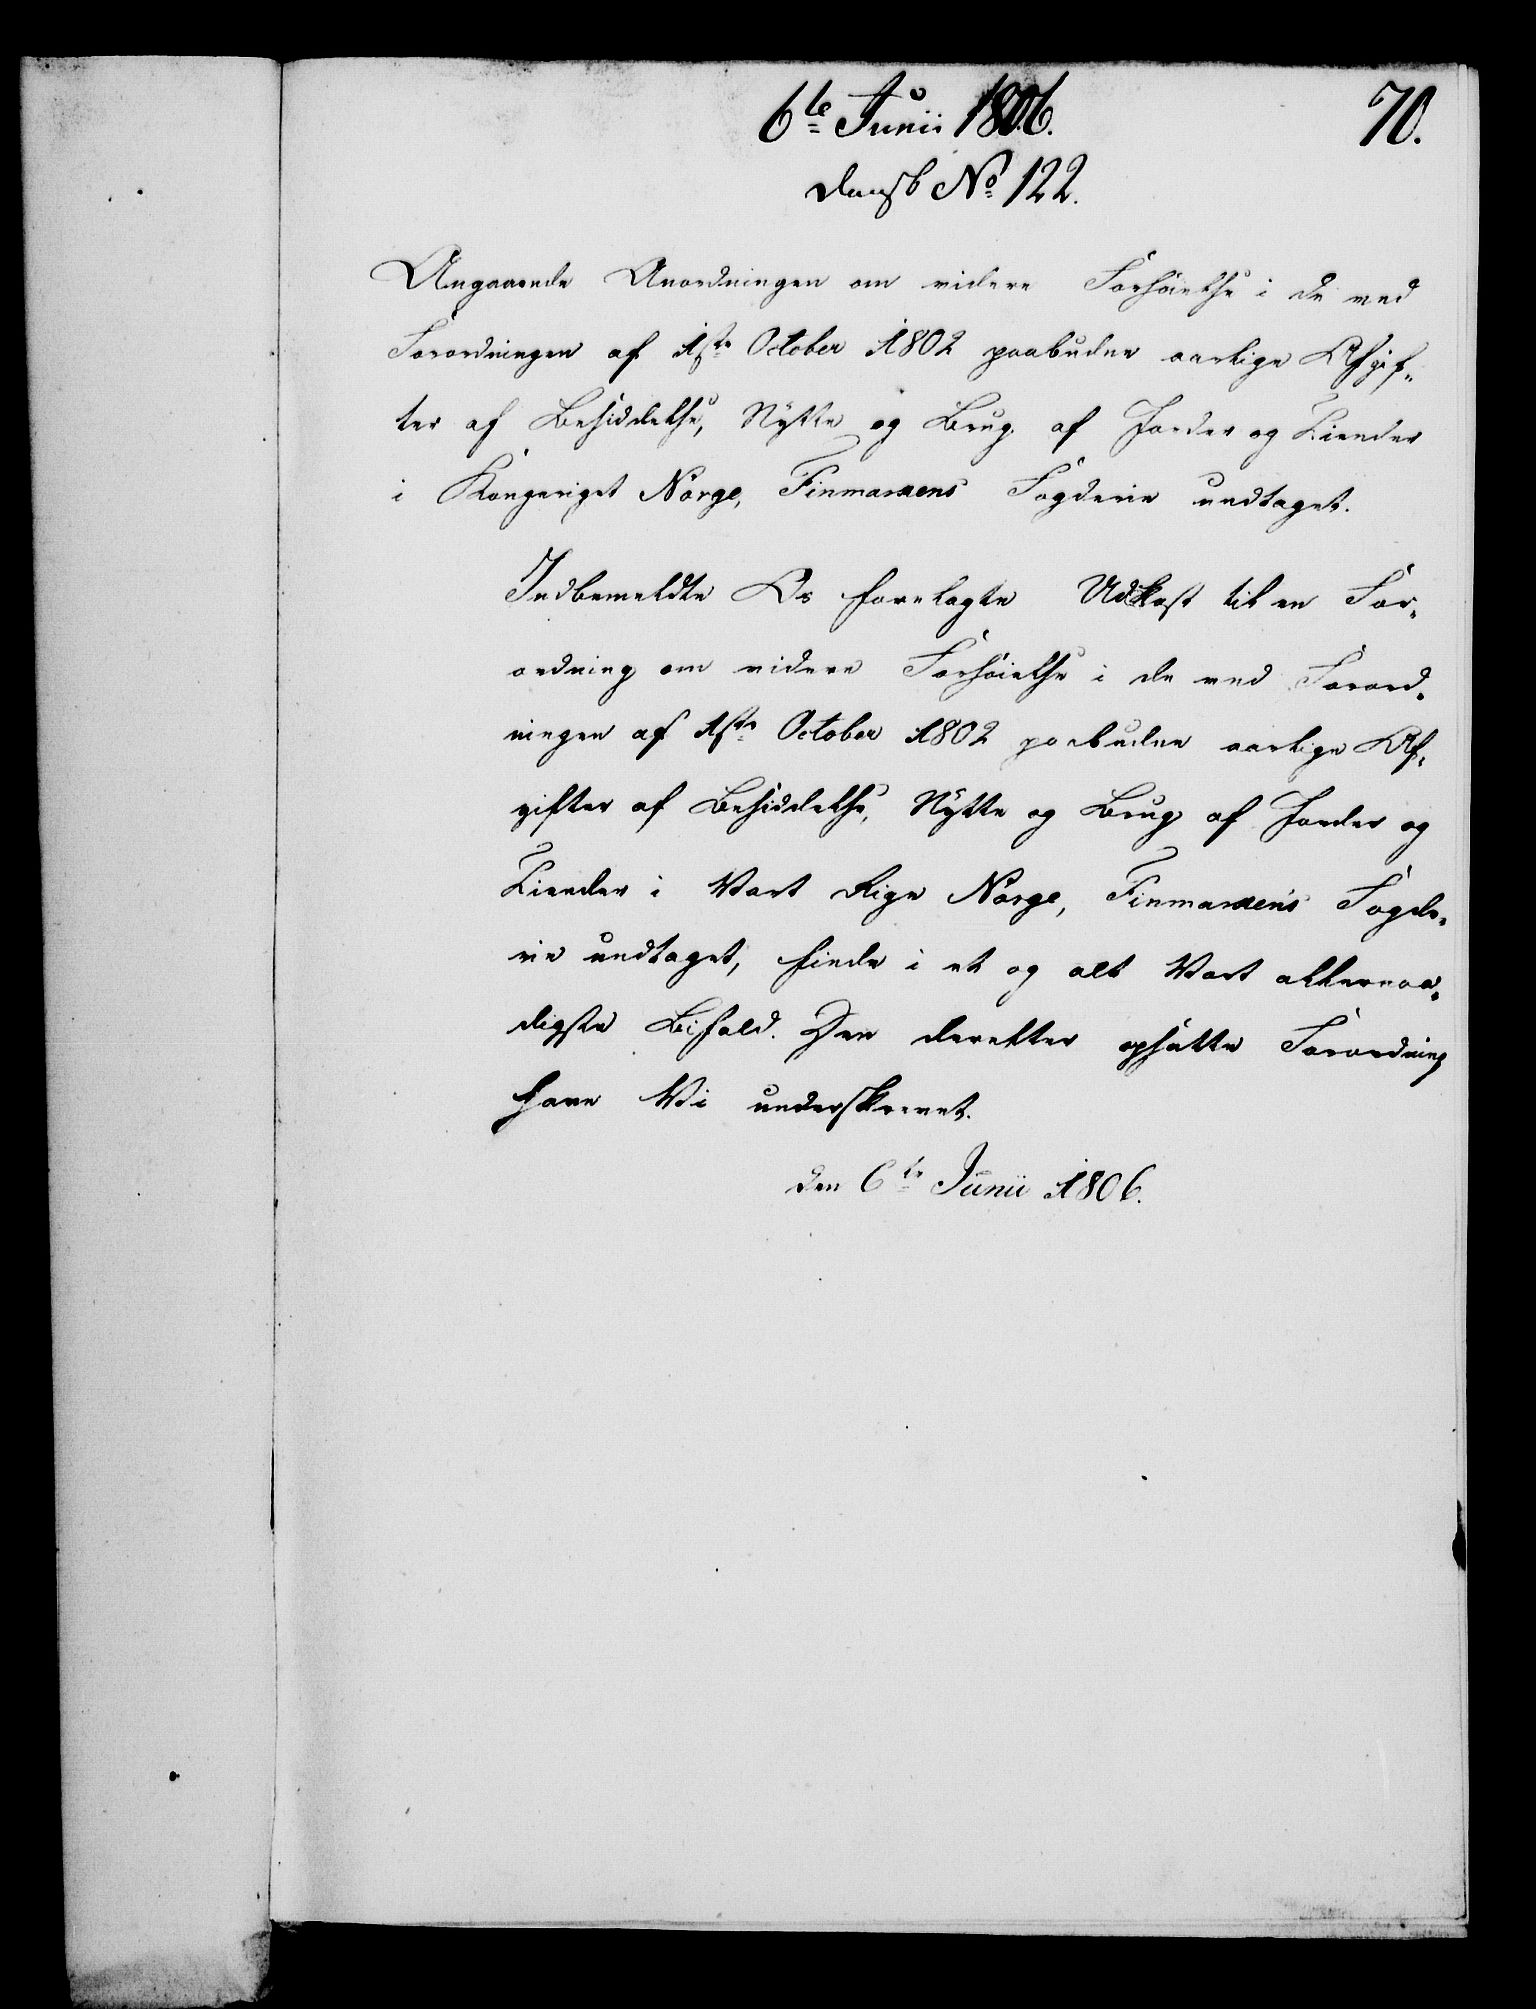 6te Junii 1806.
70.
Dansk No 122.
Angaaende Anordningen om videre Forhöielse i de ved
Forordningen af 1ste October 1802 paabudne aarlige Afgif-
ter af Besiddelse, Nytte og Brug af Jorder og Tiender
i Kongeriget Norge, Finmarkens Fogderie undtaget.
Indbemeldte Os forelagte Udkast til en For-
ordning om videre Forhöielse i de ved Forord-
ningen af 1ste October 1802 paabudne aarlige Af-
gifter af Besiddelse, Nytte og Brug af Jorder og
Tiender i Vort Rige Norge, Finmarkens Fogde-
rie undtaget, finde i et og alt Vort allernaa-
digste Bifald. Den derefter opsatte Forordning
have Vi underskrevet.
den 6te Junii 1806.